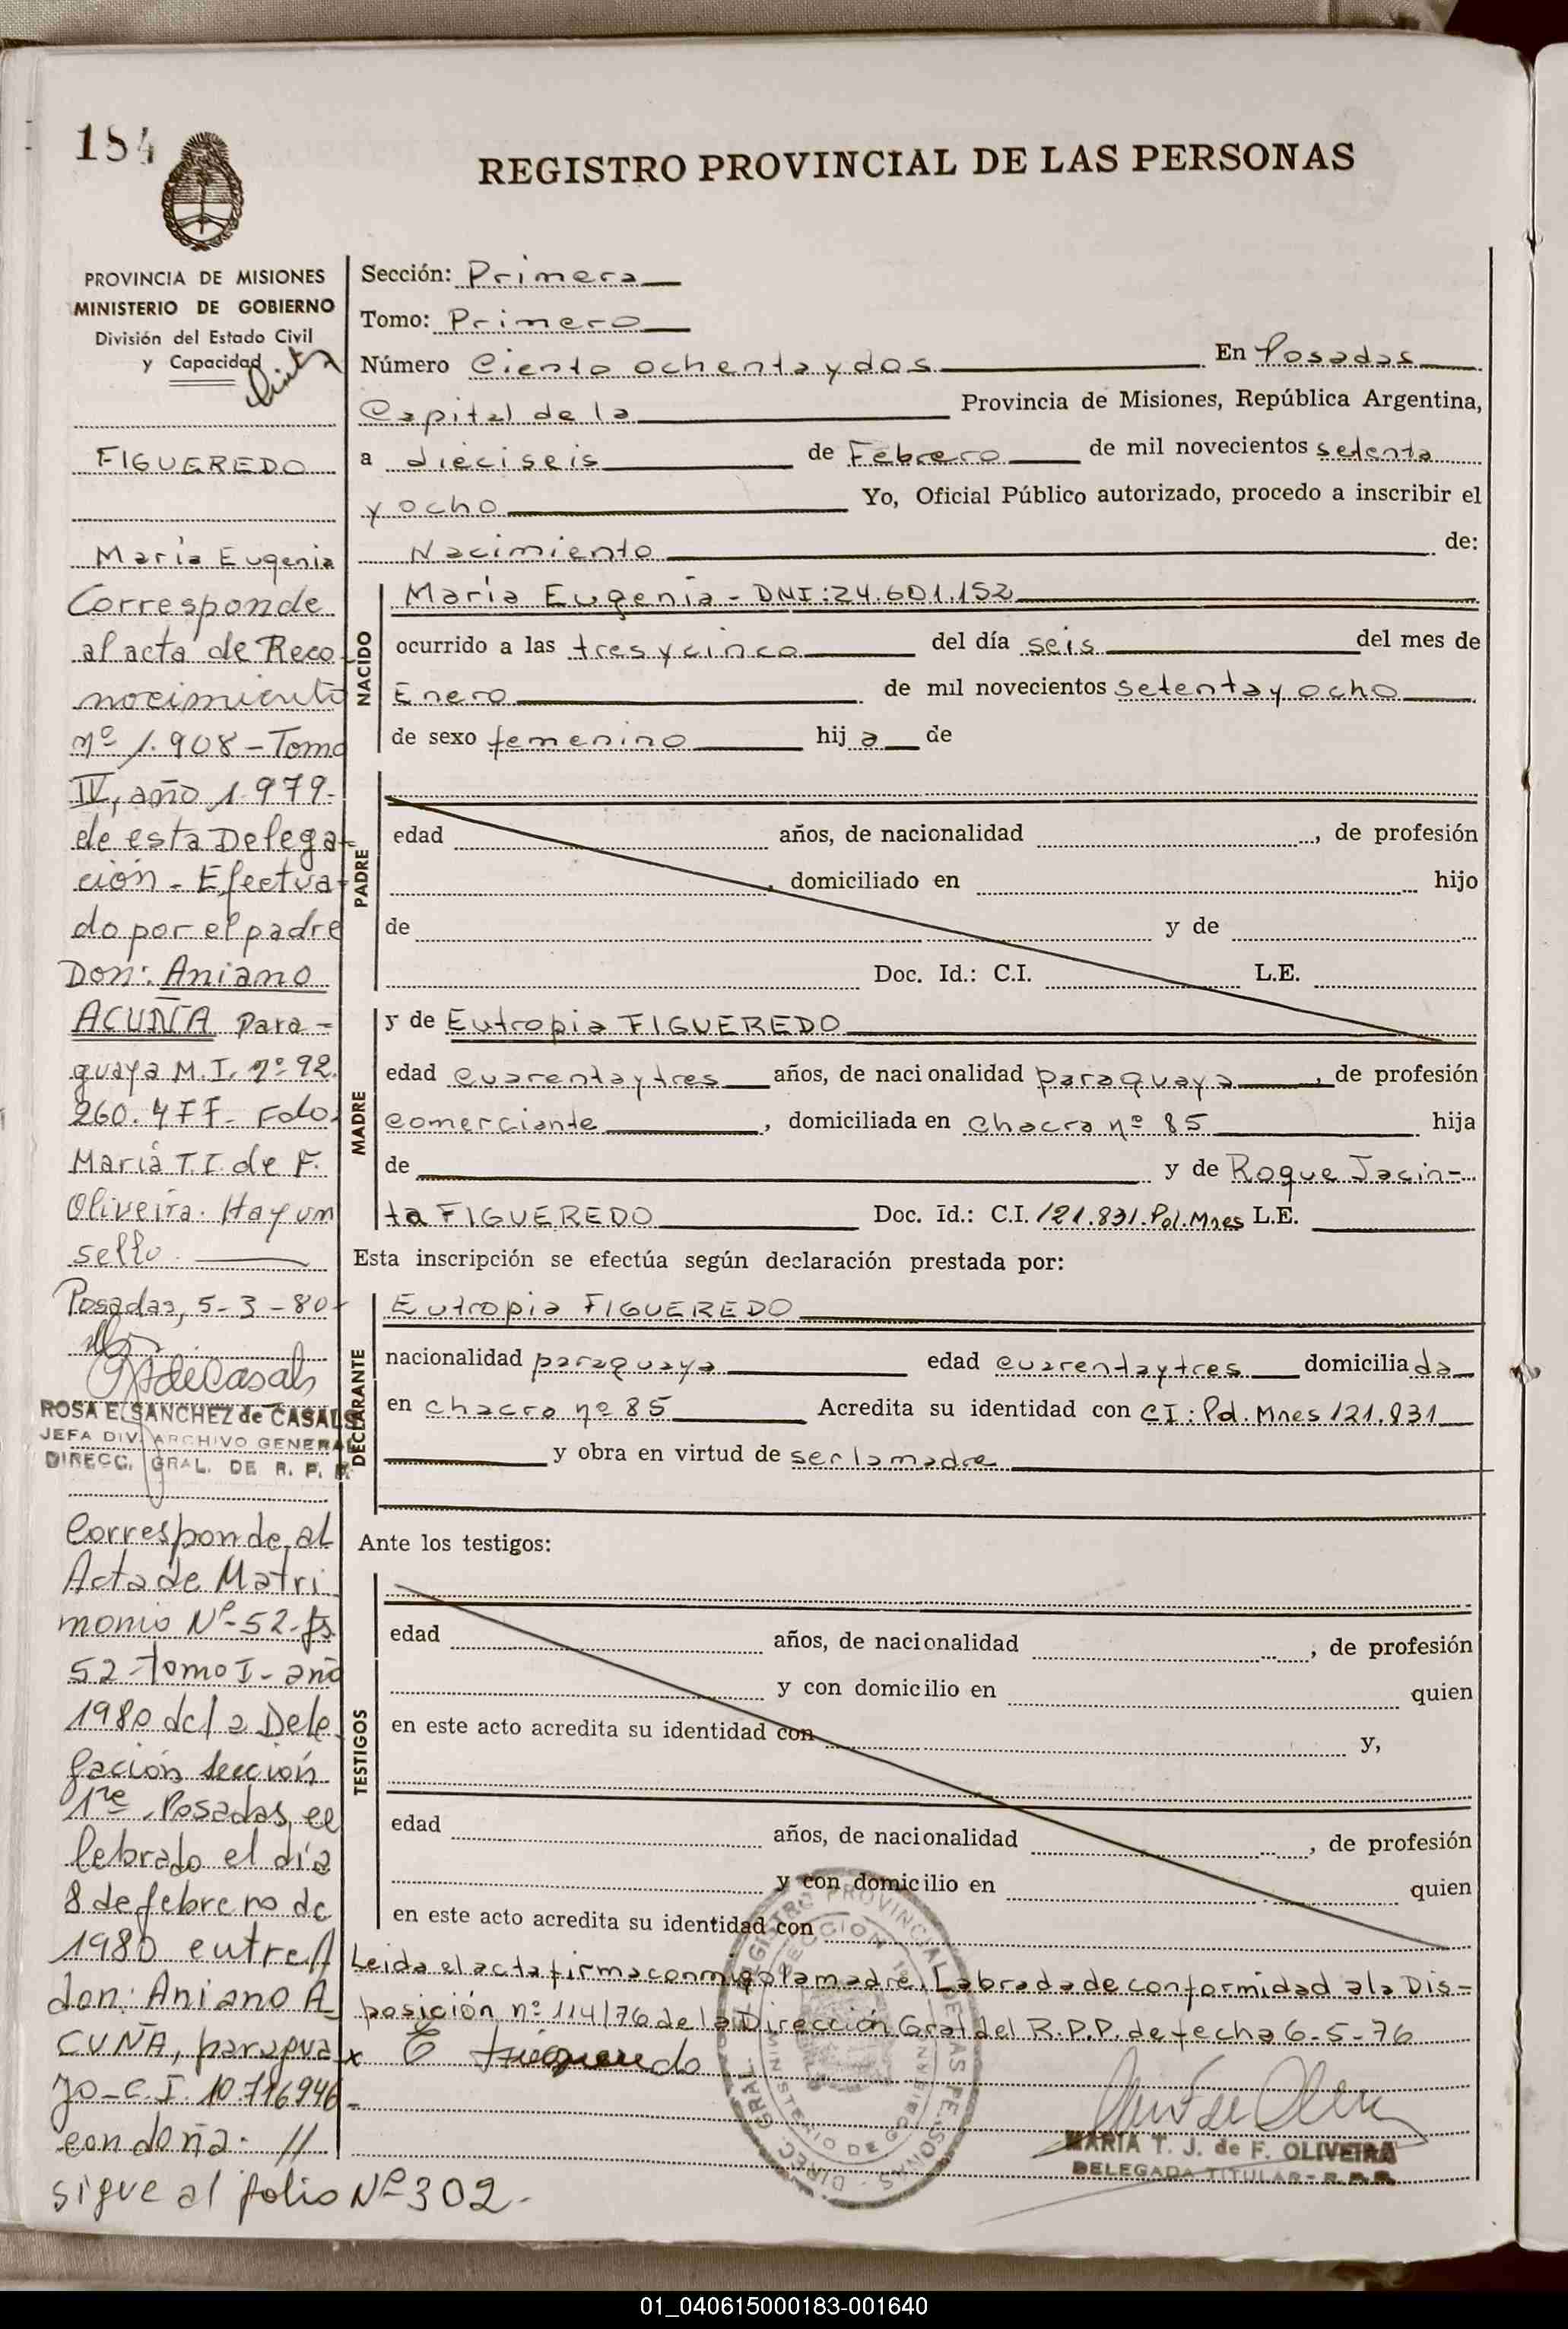 184
REGISTRO PROVINCIAL DE LAS PERSONAS
PROVINCIA DE MISIONES
MINISTERIO DE GOBIERNO
División del Estado Civil
y Capacidad
FIGUEREDO
María Eugenia
Corresponde
al acta de Reco
nocimiento
nº 1.908 - Tomo
IV, año 1.979.
de esta Delega-
ción - Efectua-
do por el padre
Don: Aniano
ACUÑA para-
guaya M.I. nº 92.
260.477- Fdo.
María T.I. de F.
Oliveira. Hay un
sello.
Posadas, 5-3-80-
ROSA E. SANCHEZ de CASALS
JEFA DIV. ARCHIVO GENERAL
DIRECC. GRAL. DE R. P. P.
Corresponde al
Acta de Matri
monio Nº-52-fs.
52-tomo I-año
1980 de la Dele
gación sección
1re. Posadas, ce
lebrado el día
8 de febrero de
1980 entre
don: Aniano A_
CUÑA, paragua
yo-C.I. 10.716946
con doña: //
sigue al folio Nº 302-
Sección: Primera
Tomo: Primero
Número Ciento ochenta y dos En Posadas
Capital de la Provincia de Misiones, República Argentina,
a dieciseis de Febrero de mil novecientos setenta
y ocho Yo, Oficial Público autorizado, procedo a inscribir el
Nacimiento de:
NACIDO
María Eugenia - DNI: 24.601.152
ocurrido a las tres y cinco del día seis del mes de
Enero de mil novecientos setenta y ocho
de sexo femenino hij a de
PADRE
edad años, de nacionalidad , de profesión
, domiciliado en hijo
de y de
Doc. Id.: C.I. L.E.
MADRE
y de Eutropia FIGUEREDO
edad cuarenta y tres años, de nacionalidad paraguaya , de profesión
comerciante , domiciliada en chacra nº 85 hija
de y de Roque Jacin-
ta FIGUEREDO Doc. Id.: C.I. 121.831.Pol.Mnes L.E.
Esta inscripción se efectúa según declaración prestada por:
DECLARANTE
Eutropia FIGUEREDO
nacionalidad paraguaya edad cuarenta y tres domiciliada
en chacra nº 85 Acredita su identidad con CI: Pol. Mnes 121.831
y obra en virtud de ser la madre
Ante los testigos:
TESTIGOS
edad años, de nacionalidad , de profesión
y con domicilio en quien
en este acto acredita su identidad con y,
edad años, de nacionalidad , de profesión
y con domicilio en quien
en este acto acredita su identidad con
Leida el acta firma conmigo la madre. Labrada de conformidad a la Dis-
posición nº 114/76 de la Dirección Gral del R.P.P. de fecha 6-5-76
x E Figueredo
DIREC. GRAL. REGISTRO PROVINCIAL DE LAS PERSONAS
SECCION 1ª
MINISTERIO DE GOBIERNO
MARIA T. J. de F. OLIVEIRA
DELEGADA TITULAR - R.P.P.
01_040615000183-001640